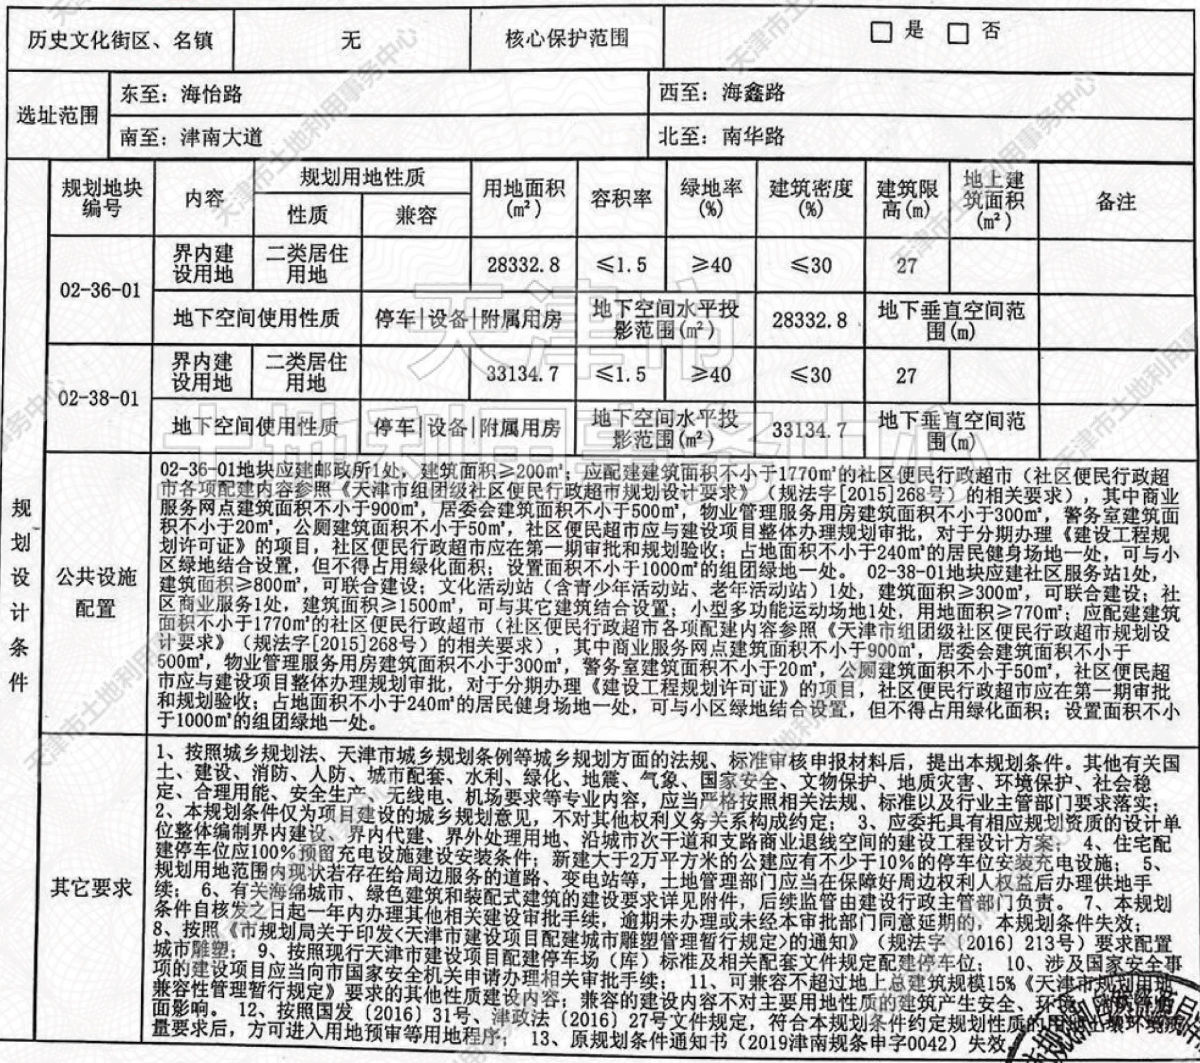 历史文化街区、名镇 无 核心保护范围 □ 是 □ 否
选址范围 东至：海怡路 西至：海鑫路
南至：津南大道 北至：南华路
规划设计条件
规划地块编号 内容 规划用地性质 用地面积(㎡) 容积率 绿地率(%) 建筑密度(%) 建筑限高(m) 地上建筑面积(㎡) 备注
性质 兼容
02-36-01 界内建设用地 二类居住用地 28332.8 ≤1.5 ≥40 ≤30 27
地下空间使用性质 停车|设备|附属用房 地下空间水平投影范围(㎡) 28332.8 地下垂直空间范围(m)
02-38-01 界内建设用地 二类居住用地 33134.7 ≤1.5 ≥40 ≤30 27
地下空间使用性质 停车|设备|附属用房 地下空间水平投影范围(㎡) 33134.7 地下垂直空间范围(m)
公共设施配置
02-36-01地块应建邮政所1处，建筑面积≥200㎡；应配建建筑面积不小于1770㎡的社区便民行政超市（社区便民行政超
市各项配建内容参照《天津市组团级社区便民行政超市规划设计要求》（规法字[2015]268号）的相关要求），其中商业
服务网点建筑面积不小于900㎡，居委会建筑面积不小于500㎡，物业管理服务用房建筑面积不小于300㎡，警务室建筑面
积不小于20㎡，公厕建筑面积不小于50㎡，社区便民超市应与建设项目整体办理规划审批，对于分期办理《建设工程规
划许可证》的项目，社区便民行政超市应在第一期审批和规划验收；占地面积不小于240㎡的居民健身场地一处，可与小
区绿地结合设置，但不得占用绿化面积；设置面积不小于1000㎡的组团绿地一处。 02-38-01地块应建社区服务站1处，
建筑面积≥800㎡，可联合建设；文化活动站（含青少年活动站、老年活动站）1处，建筑面积≥300㎡，可联合建设；社
区商业服务1处，建筑面积≥1500㎡，可与其它建筑结合设置；小型多功能运动场地1处，用地面积≥770㎡；应配建建筑
面积不小于1770㎡的社区便民行政超市（社区便民行政超市各项配建内容参照《天津市组团级社区便民行政超市规划设
计要求》（规法字[2015]268号）的相关要求），其中商业服务网点建筑面积不小于900㎡，居委会建筑面积不小于
500㎡，物业管理服务用房建筑面积不小于300㎡，警务室建筑面积不小于20㎡，公厕建筑面积不小于50㎡，社区便民超
市应与建设项目整体办理规划审批，对于分期办理《建设工程规划许可证》的项目，社区便民行政超市应在第一期审批
和规划验收；占地面积不小于240㎡的居民健身场地一处，可与小区绿地结合设置，但不得占用绿化面积；设置面积不小
于1000㎡的组团绿地一处。
其它要求
1、按照城乡规划法、天津市城乡规划条例等城乡规划方面的法规、标准审核申报材料后，提出本规划条件。其他有关国
土、建设、消防、人防、城市配套、水利、绿化、地震、气象、国家安全、文物保护、地质灾害、环境保护、社会稳
定、合理用能、安全生产、无线电、机场要求等专业内容，应当严格按照相关法规、标准以及行业主管部门要求落实；
2、本规划条件仅为项目建设的城乡规划意见，不对其他权利义务关系构成约定； 3、应委托具有相应规划资质的设计单
位整体编制界内建设、界内代建、界外处理用地、沿城市次干道和支路商业退线空间的建设工程设计方案； 4、住宅配
建停车位应100%预留充电设施建设安装条件；新建大于2万平方米的公建应有不少于10%的停车位安装充电设施； 5、
规划用地范围内现状若存在给周边服务的道路、变电站等，土地管理部门应当在保障好周边权利人权益后办理供地手
续； 6、有关海绵城市、绿色建筑和装配式建筑的建设要求详见附件，后续监管由建设行政主管部门负责。 7、本规划
条件自核发之日起一年内办理其他相关建设审批手续，逾期未办理或未经本审批部门同意延期的，本规划条件失效；
8、按照《市规划局关于印发<天津市建设项目配建城市雕塑管理暂行规定>的通知》（规法字〔2016〕213号）要求配置
城市雕塑； 9、按照现行天津市建设项目配建停车场（库）标准及相关配套文件规定配建停车位； 10、涉及国家安全事
项的建设项目应当向市国家安全机关申请办理相关审批手续； 11、可兼容不超过地上总建筑规模15%《天津市规划用地
兼容性管理暂行规定》要求的其他性质建设内容；兼容的建设内容不对主要用地性质的建筑产生安全、环
面影响。 12、按照国发〔2016〕31号、津政法〔2016〕27号文件规定，符合本规划条件约定规划性质的用
量要求后，方可进入用地预审等用地程序； 13、原规划条件通知书（2019津南规条申字0042）失效
天津市
土地利用事务中心